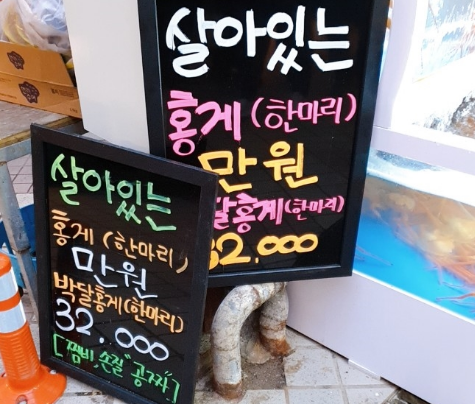 살아있는
홍게 (한마리)
만원
달홍게(한마리)
32.000
살아있는
홍게 (한마리)
만원
박달홍게(한마리)
32.000
[찜비, 손질 "공짜"]